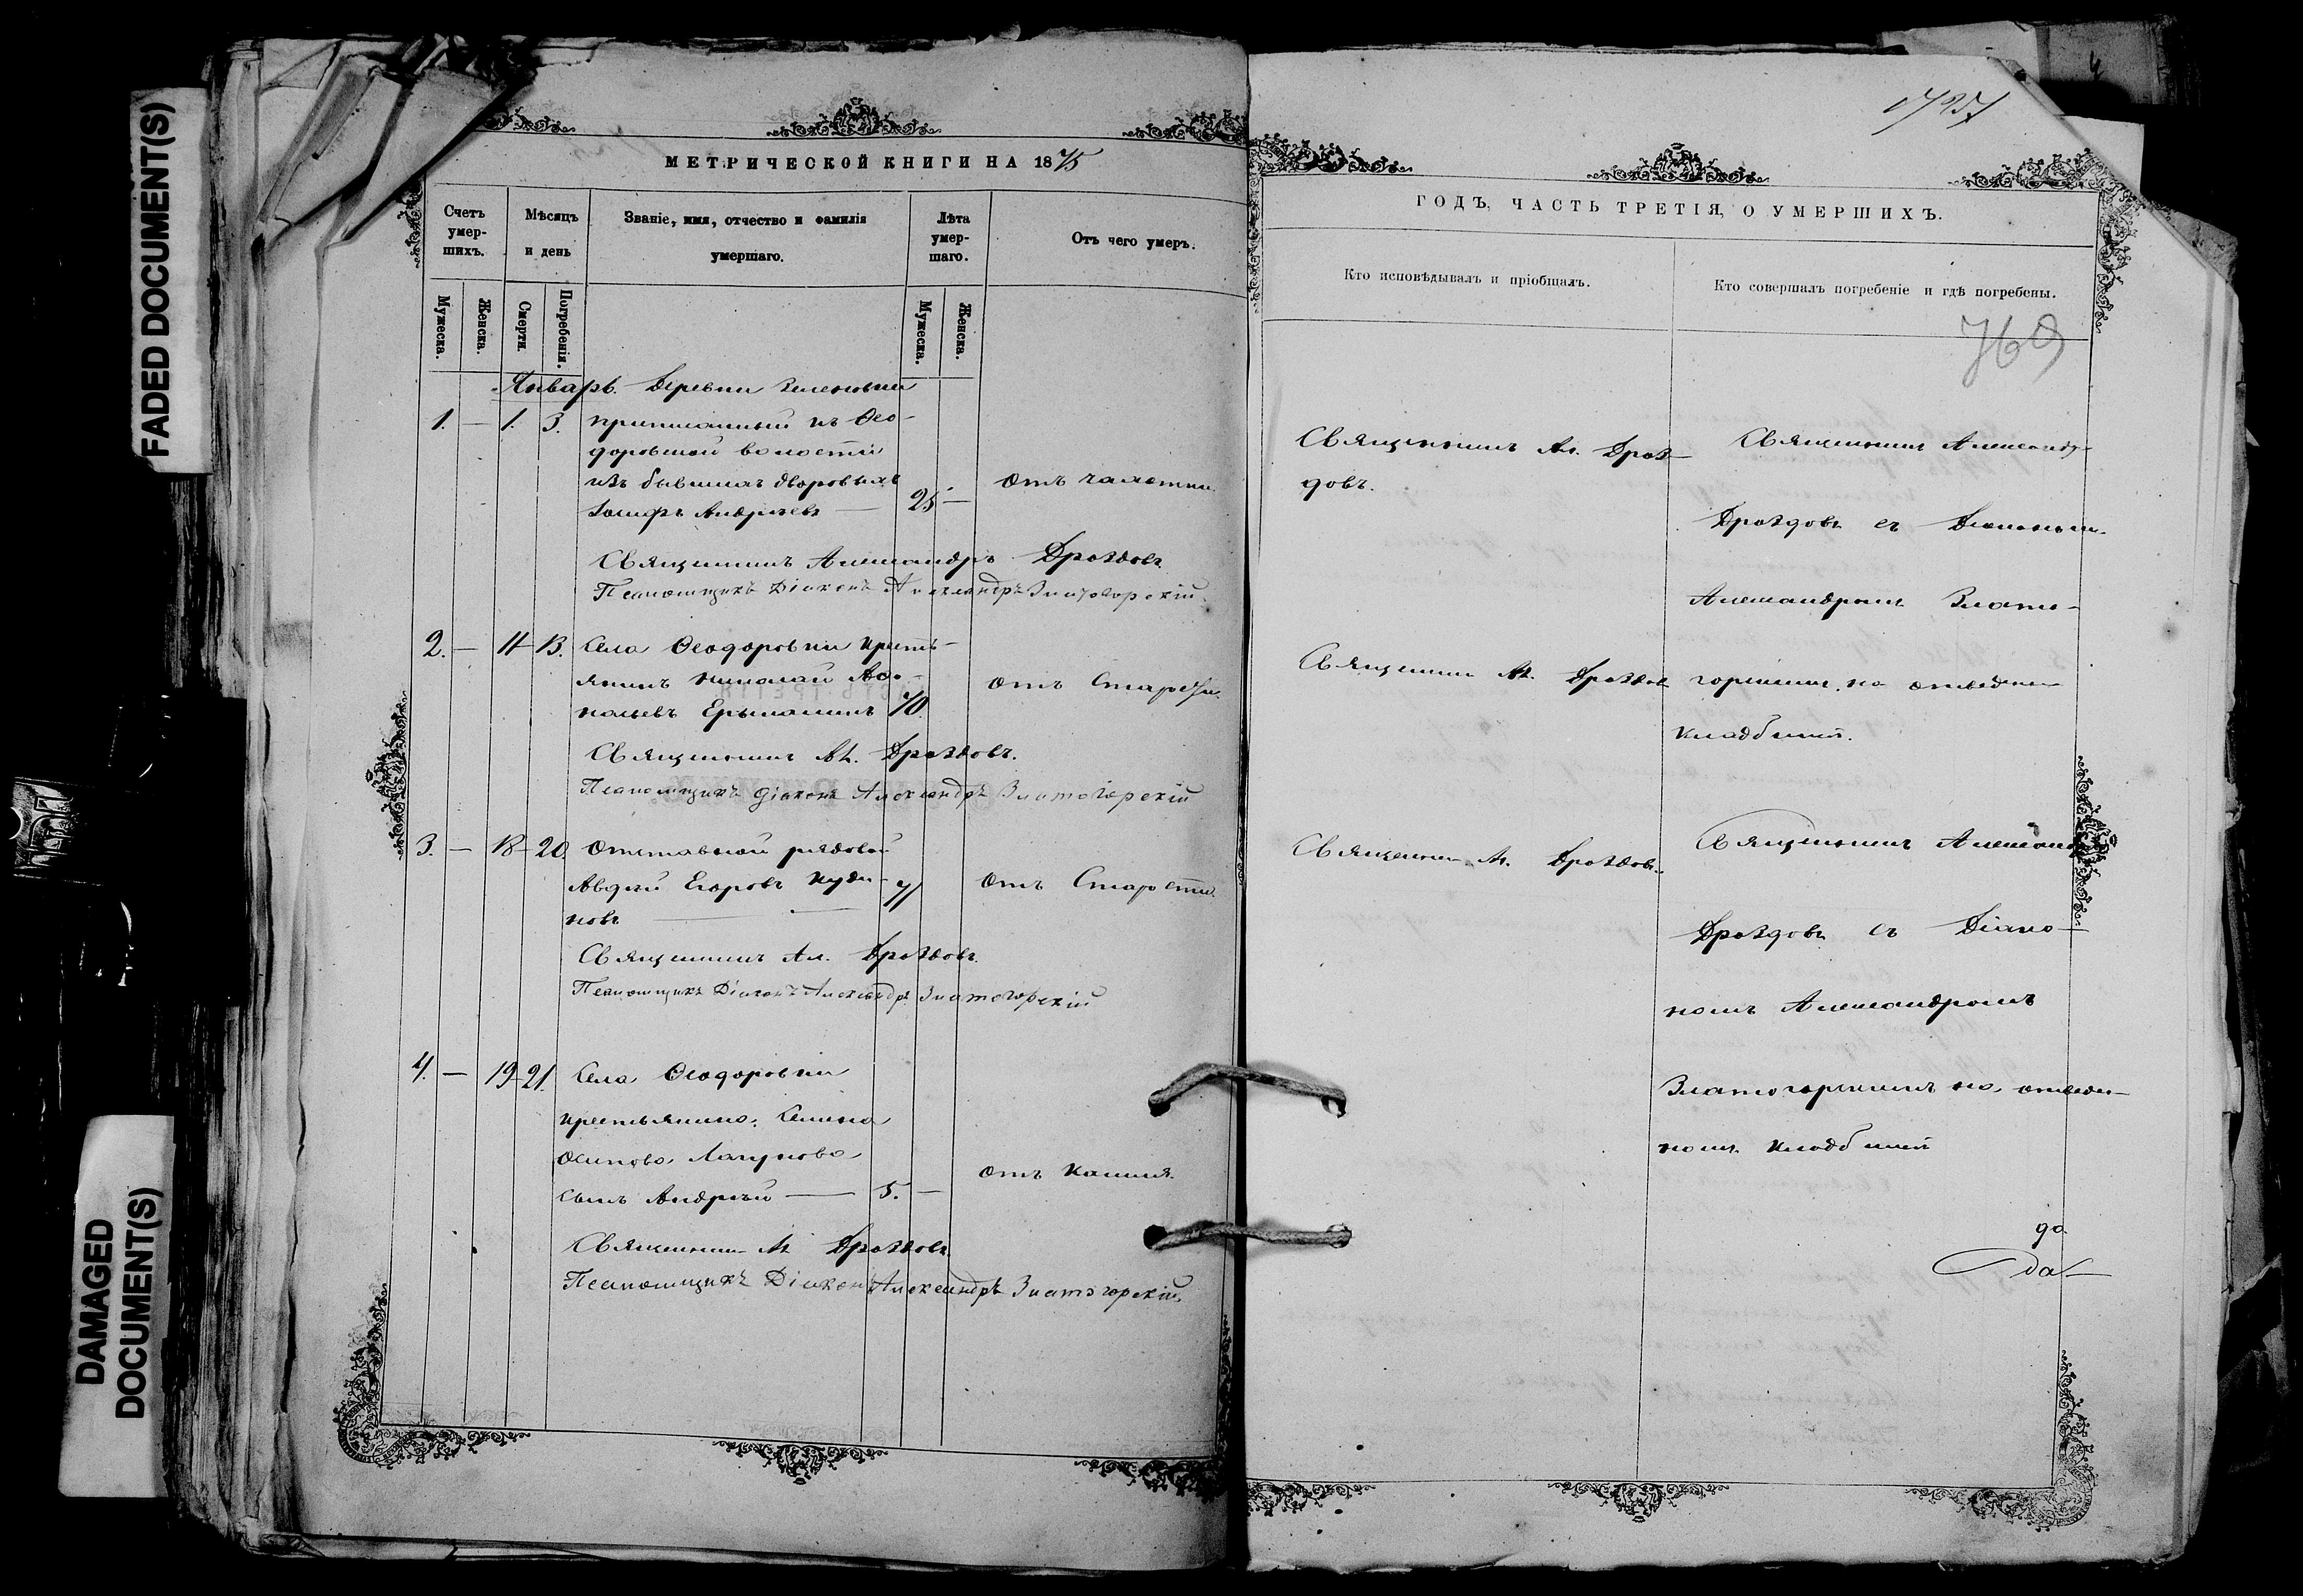 FADED DOCUMENT(S)
DAMAGED
DOCUMENT(S)
МЕТРИЧЕСКОЙ КНИГИ НА 1875
Счетъ
умер-
шихъ.
Мѣсяцъ
и день
Званіе, имя, отчество и фамилія
умершаго.
Лѣта
умер-
шаго.
Отъ чего умеръ.
Мужеска.
Женска.
Смерти.
Погребенія.
Мужеска.
Женска.
Январь. Деревни
1. — 1. 3. приписанный къ Ѳео-
доровской волости
изъ бывшихъ дворовыхъ
Іосифъ Андреевъ — 25 — отъ чахотки.
Священникъ Александръ Дроздовъ
Псаломщикъ Діаконъ Александръ Златогорскій.
2. — 11 - 13. Села Ѳеодоровки кресть-
янинъ Николай
Ермашинъ 70. отъ Старости.
Священникъ Ал. Дроздовъ.
Псаломщикъ діаконъ Александръ Златогорскій
3. — 18 - 20. Отставной рядовой
Авдѣй Егоровъ Куди-
новъ — 71 отъ Старости.
Священникъ Ал. Дроздовъ.
Псаломщикъ Діаконъ Александръ Златогорскій
4. — 19 - 21. Села Ѳеодоровки
крестьянина,
Осипова Лагунова
сынъ Андрей — 5. — отъ Кашля.
Священникъ Ал. Дроздовъ.
Псаломщикъ Діаконъ Александръ Златогорскій.
ГОДЪ, ЧАСТЬ ТРЕТІЯ, О УМЕРШИХЪ.
Кто исповѣдывалъ и пріобщалъ.
Кто совершалъ погребеніе и гдѣ погребены.
Священникъ Ал. Дроз-
довъ.
Священникъ Ал. Дроздовъ
Священникъ Ал. Дроздовъ.
Священникъ Александръ
Дроздовъ съ Діакономъ
Александромъ Злато-
горскимъ, на отведенномъ
кладбищѣ.
Священникъ Александръ
Дроздовъ съ Діако-
номъ Александромъ
Златогорскимъ на отведен-
номъ кладбищѣ